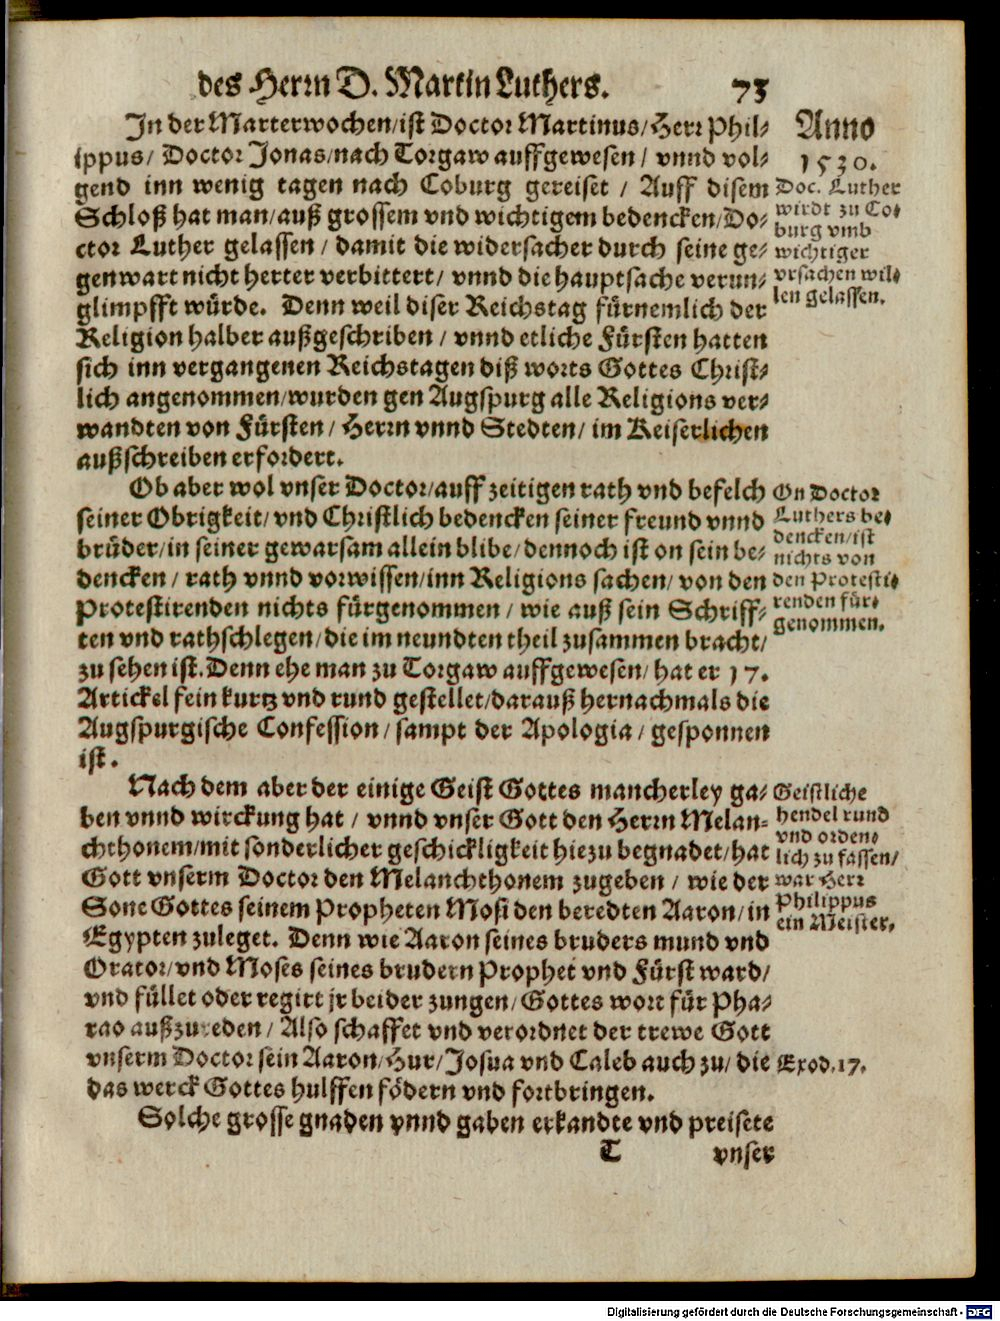 des Herrn D. Martin Luthers. 73
In der Marterwochen/ist Doctor Martinus/Herr Phil-
ippus/ Doctor Jonas/nach Torgaw auffgewesen / vnnd vol-
gend inn wenig tagen nach Coburg gereiset / Auff disem
Schloß hat man/auß grossem vnd wichtigem bedencken/Do-
ctor Luther gelassen / damit die widersacher durch seine ge-
genwart nicht herter verbittert/ vnnd die hauptsache verun-
glimpfft würde. Denn weil diser Reichstag fürnemlich der
Religion halber außgeschriben / vnnd etliche Fürsten hatten
sich inn vergangenen Reichstagen diß worts Gottes Christ-
lich angenommen/wurden gen Augspurg alle Religions ver-
wandten von Fürsten/ Herrn vnnd Stedten/ im Keiserlichen
außschreiben erfordert.
Ob aber wol vnser Doctor/auff zeitigen rath vnd befelch
seiner Obrigkeit/ vnd Christlich bedencken seiner freund vnnd
brüder/in seiner gewarsam allein blibe/dennoch ist on sein be-
dencken / rath vnnd vorwissen/inn Religions sachen/ von den
Protestirenden nichts fürgenommen / wie auß sein Schriff-
ten vnd rathschlegen/die im neundten theil zusammen bracht/
zu sehen ist. Denn ehe man zu Torgaw auffgewesen/ hat er 17.
Artickel fein kurtz vnd rund gestellet/darauß hernachmals die
Augspurgische Confession/ sampt der Apologia/ gesponnen
ist.
Nach dem aber der einige Geist Gottes mancherley ga-
ben vnnd wirckung hat / vnnd vnser Gott den Herrn Melan-
chthonem/mit sonderlicher geschickligkeit hiezu begnadet/hat
Gott vnserm Doctor den Melanchthonem zugeben / wie der
Sone Gottes seinem Propheten Mosi den beredten Aaron/in
Egypten zuleget. Denn wie Aaron seines bruders mund vnd
Orator/vnd Moses seines brudern Prophet vnd Fürst ward/
vnd füllet oder regirt jr beider zungen/Gottes wort für Pha-
rao außzureden/ Also schaffet vnd verordnet der trewe Gott
vnserm Doctor sein Aaron/Hur/Josua vnd Caleb auch zu/ die
das werck Gottes hulffen födern vnd fortbringen.
Solche grosse gnaden vnnd gaben erkandte vnd preisete
T vnser
Anno
1530.
Doc. Luther
wirdt zu Co-
burg vmb
wichtiger
vrsachen wil-
len gelassen.
On Doctor
Luthers be-
dencken/ist
nichts von
den Protesti-
renden für-
genommen.
Geistliche
hendel rund
vnd orden-
lich zu fassen/
war Herr
Philippus
ein Meister.
Exod. 17.
Digitalisierung gefördert durch die Deutsche Forschungsgemeinschaft - DFG